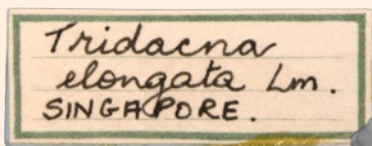 Tridacna
elongata Lm.
SINGAPORE.